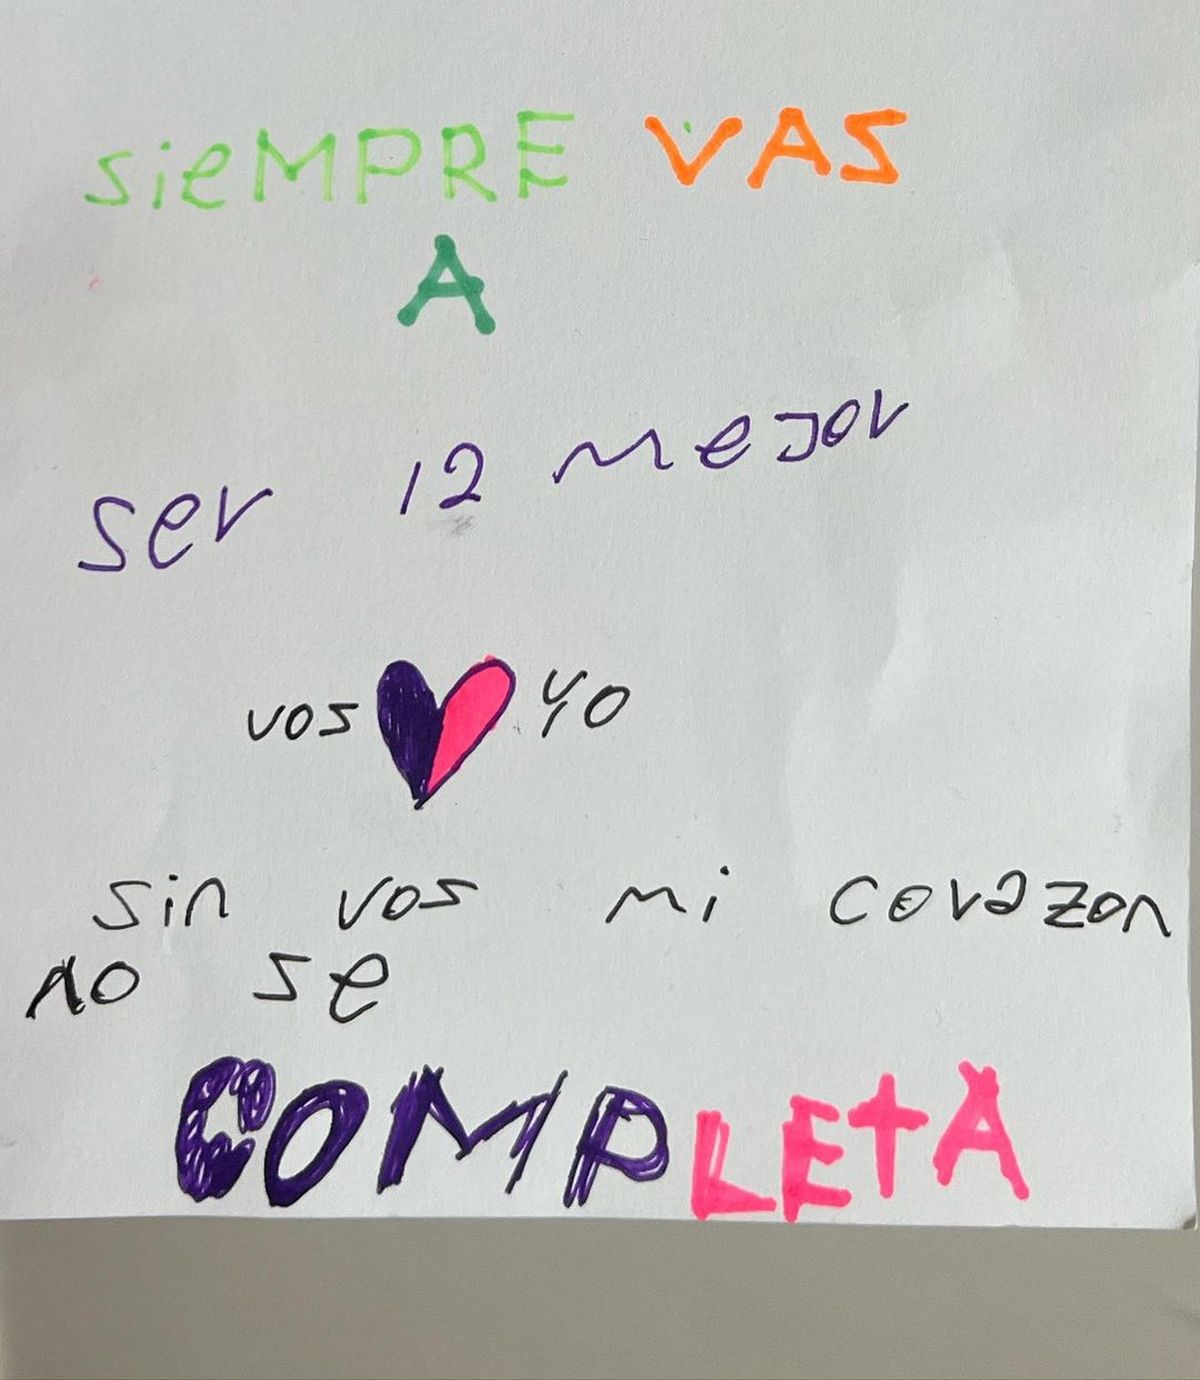 sieMPRE VAS
A
ser la mejor
vos yo
sin vos mi corazon
no se
COMPLETA